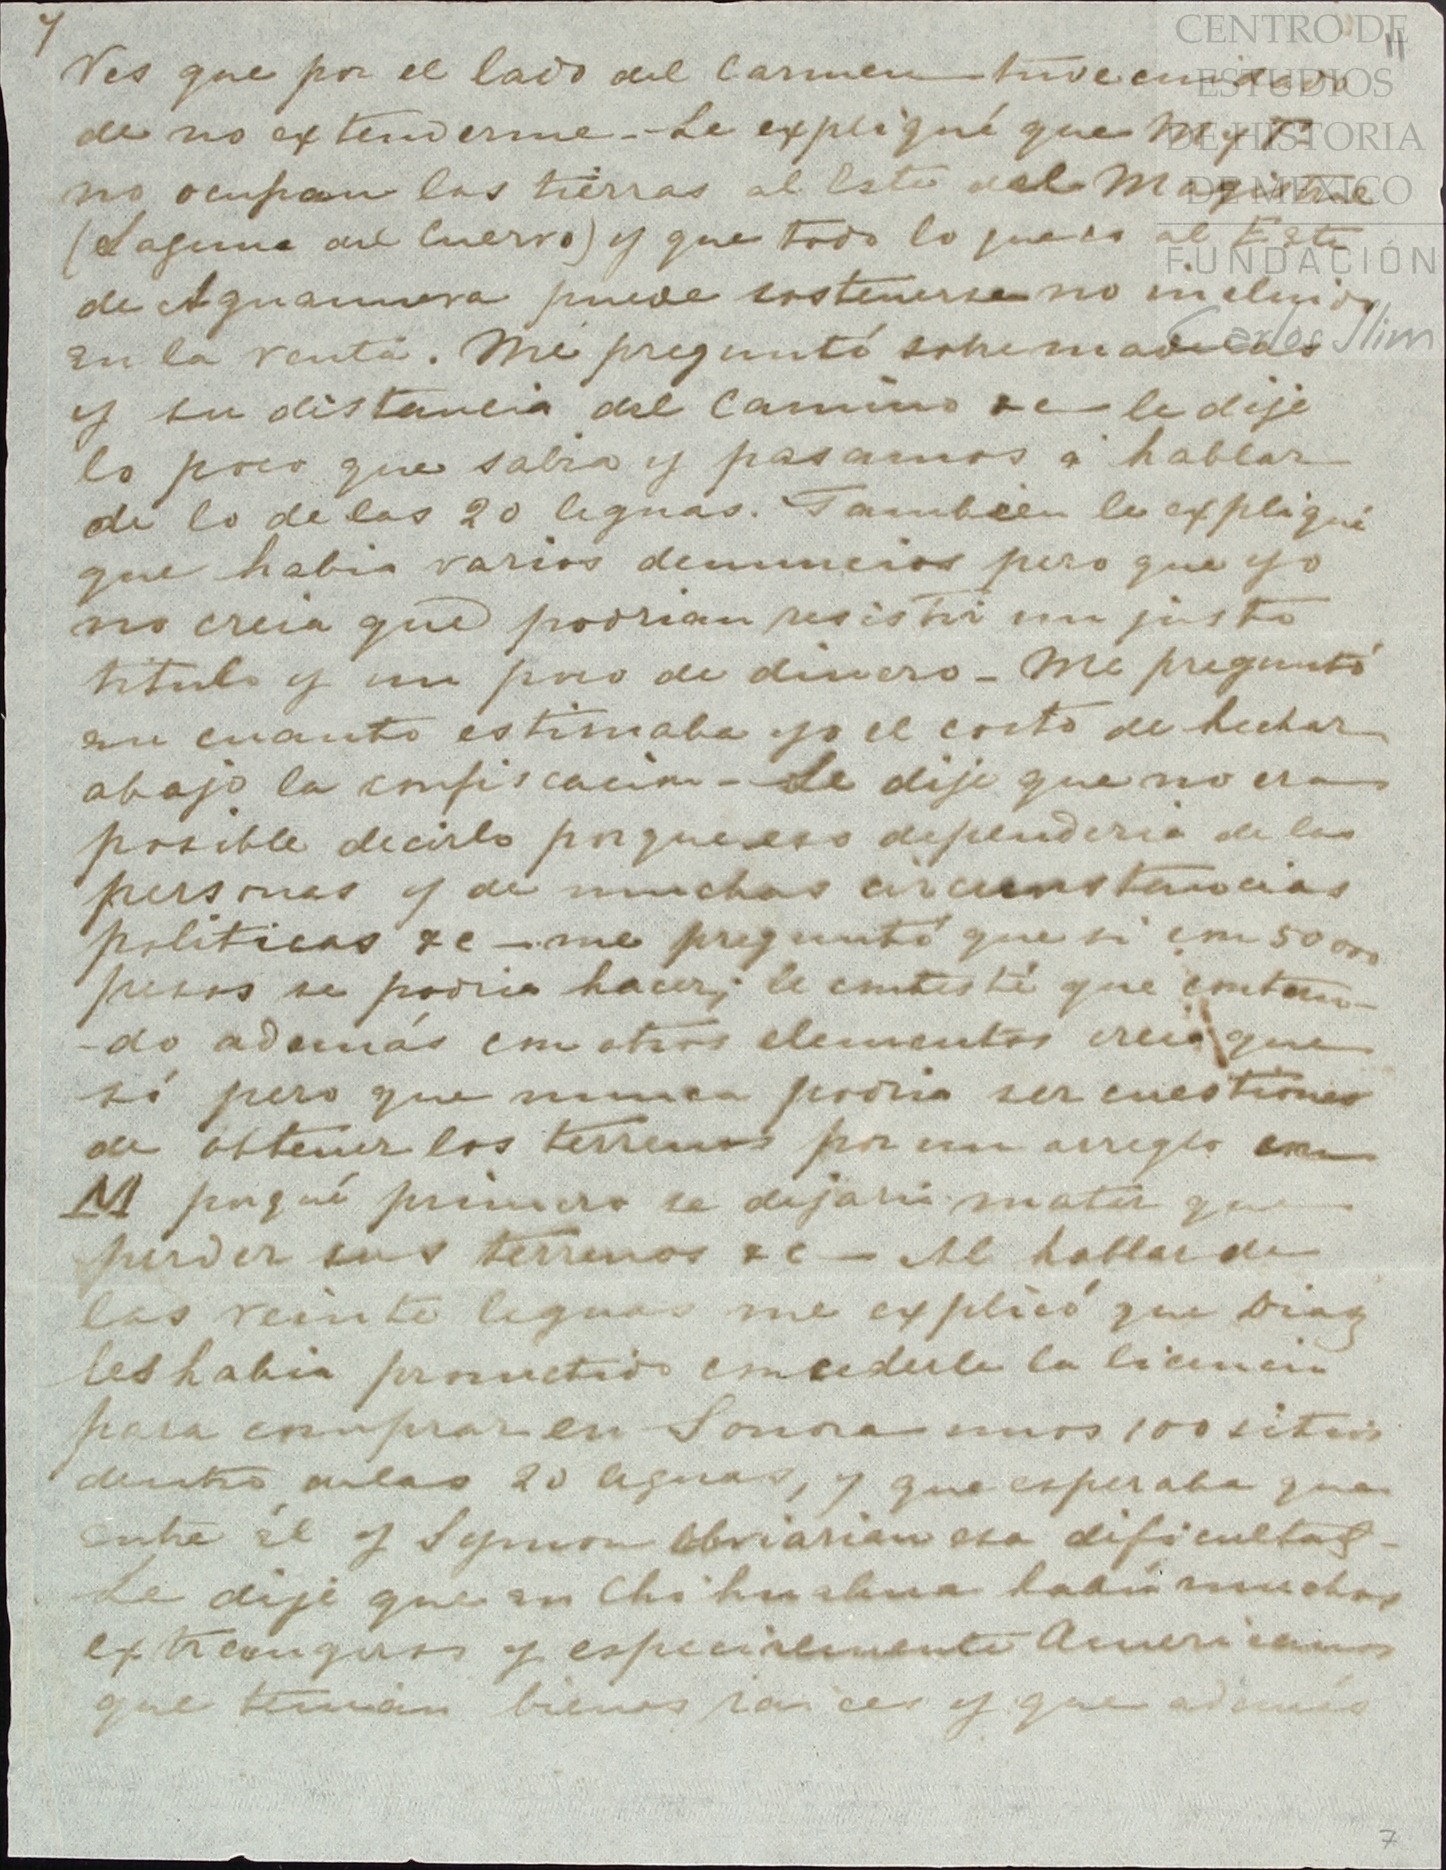 7
11
CENTRO DE
ESTUDIOS
DE HISTORIA
DE MÉXICO
FUNDACIÓN
Carlos Slim
Ves que por el lado del Carmen tuve cuidado
de no extenderme - Le expliqué que M y T
no ocupan las tierras al Este del Magistral
(Laguna del Cuervo) y que todo lo que es al Este
de Aguanueva puede sostenerse no incluido
en la venta. Me preguntó sobre maderas
y su distancia del camino &c - le dije
lo poco que sabia y pasamos á hablar
de lo de las 20 leguas. Tambien le expliqué
que habia varios denuncios pero que yo
no creia que podrian resistir un justo
titulo y un poco de dinero - Me preguntó
en cuanto estimaba yo el costo de hechar
abajo la confiscacion - Le dije que no era
posible decirlo porque eso dependeria de las
personas y de muchas circunstancias
politicas &c - me preguntó que si con 50000
pesos se podria hacer; le contesté que contan-
-do además con otros elementos creia que
sí pero que nunca podria ser cuestiones
de obtener los terrenos por un arreglo con
M porqué primero se dejaria matar que
perder sus terrenos &c - Al hablar de
las veinte leguas me explicó que Diaz
les habia prometido concederle la licencia
para comprar en Sonora unos 100 sitios
dentro de las 20 leguas, y que esperaba que
entre él y Symon obviarian esa dificultad -
Le dije que en Chihuahua habia muchos
extrangeros y especialmente Americanos
que tenian bienes raices y que además
7